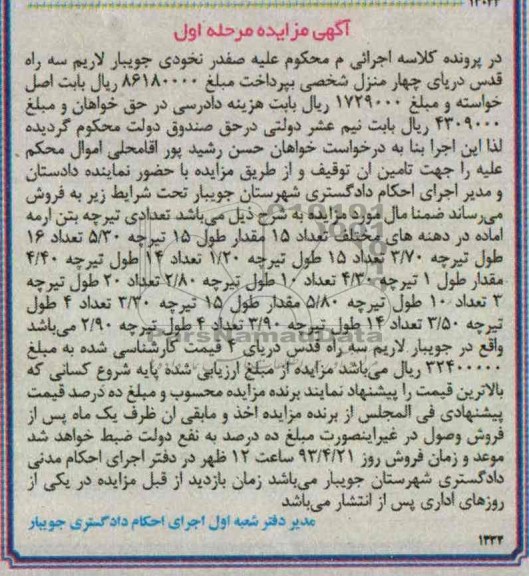 ۱۳۰۲۲
آگهی مزایده مرحله اول
در پرونده کلاسه اجرائی م محکوم علیه صفدر نخودی جویبار لاریم سه راه
قدس دریای چهار منزل شخصی بپرداخت مبلغ ۸۶۱۸۰۰۰۰ ریال بابت اصل
خواسته و مبلغ ۱۷۲۹۰۰۰ ریال بابت هزینه دادرسی در حق خواهان و مبلغ
۴۳۰۹۰۰۰ ریال بابت نیم عشر دولتی درحق صندوق دولت محکوم گردیده
لذا این اجرا بنا به درخواست خواهان حسن رشید پور اقامحلی اموال محکم
علیه را جهت تامین ان توقیف و از طریق مزایده با حضور نماینده دادستان
و مدیر اجرای احکام دادگستری شهرستان جویبار تحت شرایط زیر به فروش
می‌رساند ضمنا مال مورد مزایده به شرح ذیل می‌باشد تعدادی تیرچه بتن ارمه
اماده در دهنه های مختلف تعداد ۱۵ مقدار طول ۱۵ تیرچه ۵/۳۰ تعداد ۱۶
طول تیرچه ۳/۷۰ تعداد ۱۵ طول تیرچه ۱/۲۰ تعداد ۱۴ طول تیرچه ۴/۴۰
مقدار طول ۱ تیرچه ۴/۳۰ تعداد ۱۰ طول تیرچه ۲/۸۰ تعداد ۲۰ طول تیرچه
۳ تعداد ۱۰ طول تیرچه ۵/۸۰ مقدار طول ۱۵ تیرچه ۳/۳۰ تعداد ۴ طول
تیرچه ۳/۵۰ تعداد ۱۴ طول تیرچه ۳/۹۰ تعداد ۴ طول تیرچه ۲/۹۰ می‌باشد
واقع در جویبار لاریم سه راه قدس دریای ۴ قیمت کارشناسی شده به مبلغ
۳۲۴۰۰۰۰۰ ریال می‌باشد مزایده از مبلغ ارزیابی شده پایه شروع کسانی که
بالاترین قیمت را پیشنهاد نمایند برنده مزایده محسوب و مبلغ ده درصد قیمت
پیشنهادی فی المجلس از برنده مزایده اخذ و مابقی ان ظرف یک ماه پس از
فروش وصول در غیراینصورت مبلغ ده درصد به نفع دولت ضبط خواهد شد
موعد و زمان فروش روز ۹۳/۴/۲۱ ساعت ۱۲ ظهر در دفتر اجرای احکام مدنی
دادگستری شهرستان جویبار می‌باشد زمان بازدید از قبل مزایده در یکی از
روزهای اداری پس از انتشار می‌باشد
مدیر دفتر شعبه اول اجرای احکام دادگستری جویبار
۱۳۳۴
ParsNamadData